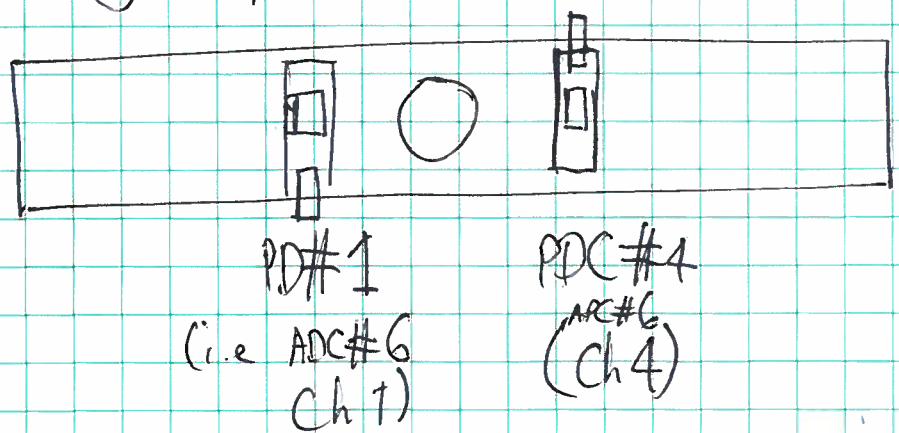 PD#1
(i.e ADC#6
Ch 1)
PDC#4
ADC#6
(Ch 4)